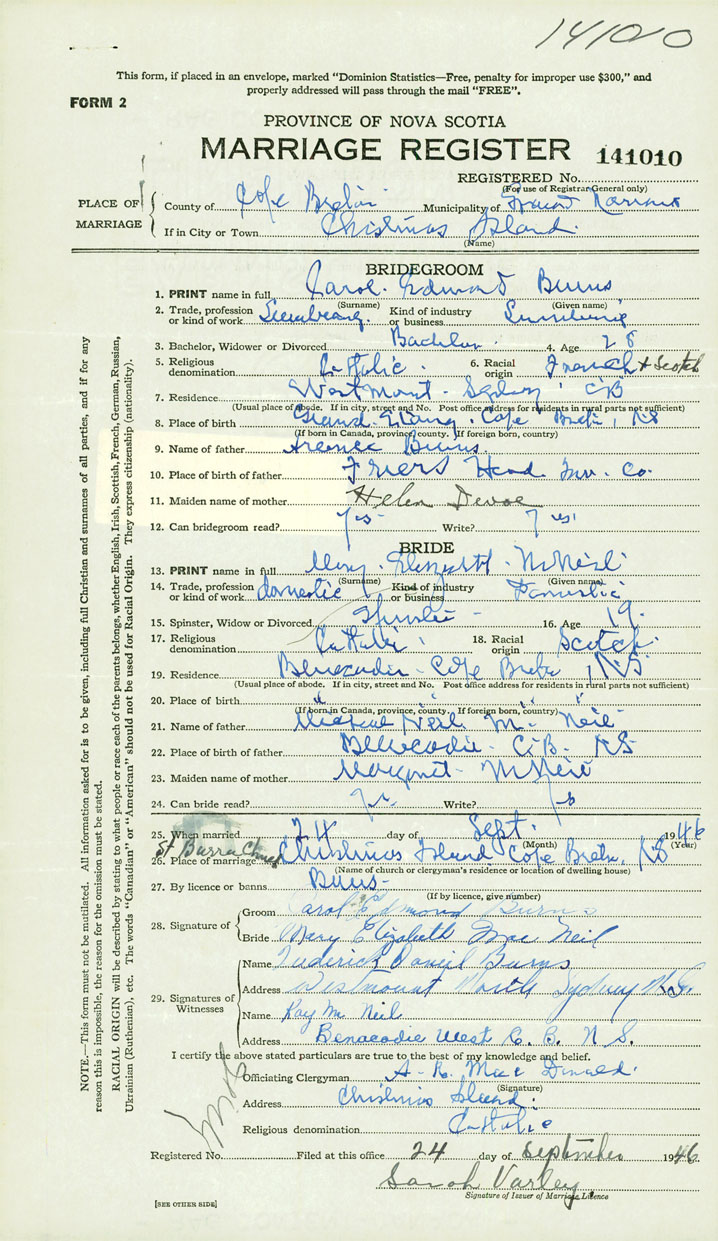 141010
This form, if placed in an envelope, marked "Dominion Statistics—Free, penalty for improper use $300," and
properly addressed will pass through the mail "FREE".
FORM 2
PROVINCE OF NOVA SCOTIA
MARRIAGE REGISTER 141010
REGISTERED No.
(For use of Registrar General only)
PLACE OF MARRIAGE
County of Cape Breton Municipality of
If in City or Town Christmas Island
(Name)
BRIDEGROOM
1. PRINT name in full Carol Edmond Burns
(Surname) (Given name)
2. Trade, profession or kind of work Kind of industry or business
3. Bachelor, Widower or Divorced Bachelor 4. Age 28
5. Religious denomination Catholic 6. Racial origin French & Scotch
7. Residence Westmount Sydney CB
(Usual place of abode. If in city, street and No. Post office address for residents in rural parts not sufficient)
8. Place of birth Cape Breton, NS
(If born in Canada, province, county. If foreign born, country)
9. Name of father Burns
10. Place of birth of father Friers Head Inv. Co.
11. Maiden name of mother Helen Devoe
12. Can bridegroom read? Yes Write? Yes
BRIDE
13. PRINT name in full Mary Elizabeth McNeil
(Surname) (Given name)
14. Trade, profession or kind of work domestic Kind of industry or business
15. Spinster, Widow or Divorced Spinster 16. Age 19
17. Religious denomination Catholic 18. Racial origin Scotch
19. Residence Cape Breton, NS
(Usual place of abode. If in city, street and No. Post office address for residents in rural parts not sufficient)
20. Place of birth " " "
(If born in Canada, province, county. If foreign born, country)
21. Name of father Michael Neil McNeil
22. Place of birth of father C.B. NS
23. Maiden name of mother Margaret McNeil
24. Can bride read? Yes Write? Yes
25. When married 24 day of Sept. 1946
(Month) (Year)
St Barra Church
26. Place of marriage Christmas Island Cape Breton, NS
(Name of church or clergyman's residence or location of dwelling house)
27. By licence or banns
(If by licence, give number)
28. Signature of
Groom Carol Edmond Burns
Bride Mary Elizabeth Mac Neil
29. Signatures of Witnesses
Name Daniel Burns
Address Westmount North Sydney N.S.
Name Ray Mc Neil
Address Benacadie West C. B. N. S.
I certify the above stated particulars are true to the best of my knowledge and belief.
Officiating Clergyman A. R. MacDonald
(Signature)
Address Christmas Island
Religious denomination Catholic
Registered No. Filed at this office 24 day of September 1946
Sarah Varley
Signature of Issuer of Marriage Licence
[SEE OTHER SIDE]
NOTE.—This form must not be mutilated. All information asked for is to be given, including full Christian and surnames of all parties, and if for any
reason this is impossible, the reason for the omission must be stated.
RACIAL ORIGIN will be described by stating to what people or race each of the parents belongs, whether English, Irish, Scottish, French, German, Russian,
Ukrainian (Ruthenian), etc. The words "Canadian" or "American" should not be used for Racial Origin. They express citizenship (nationality).